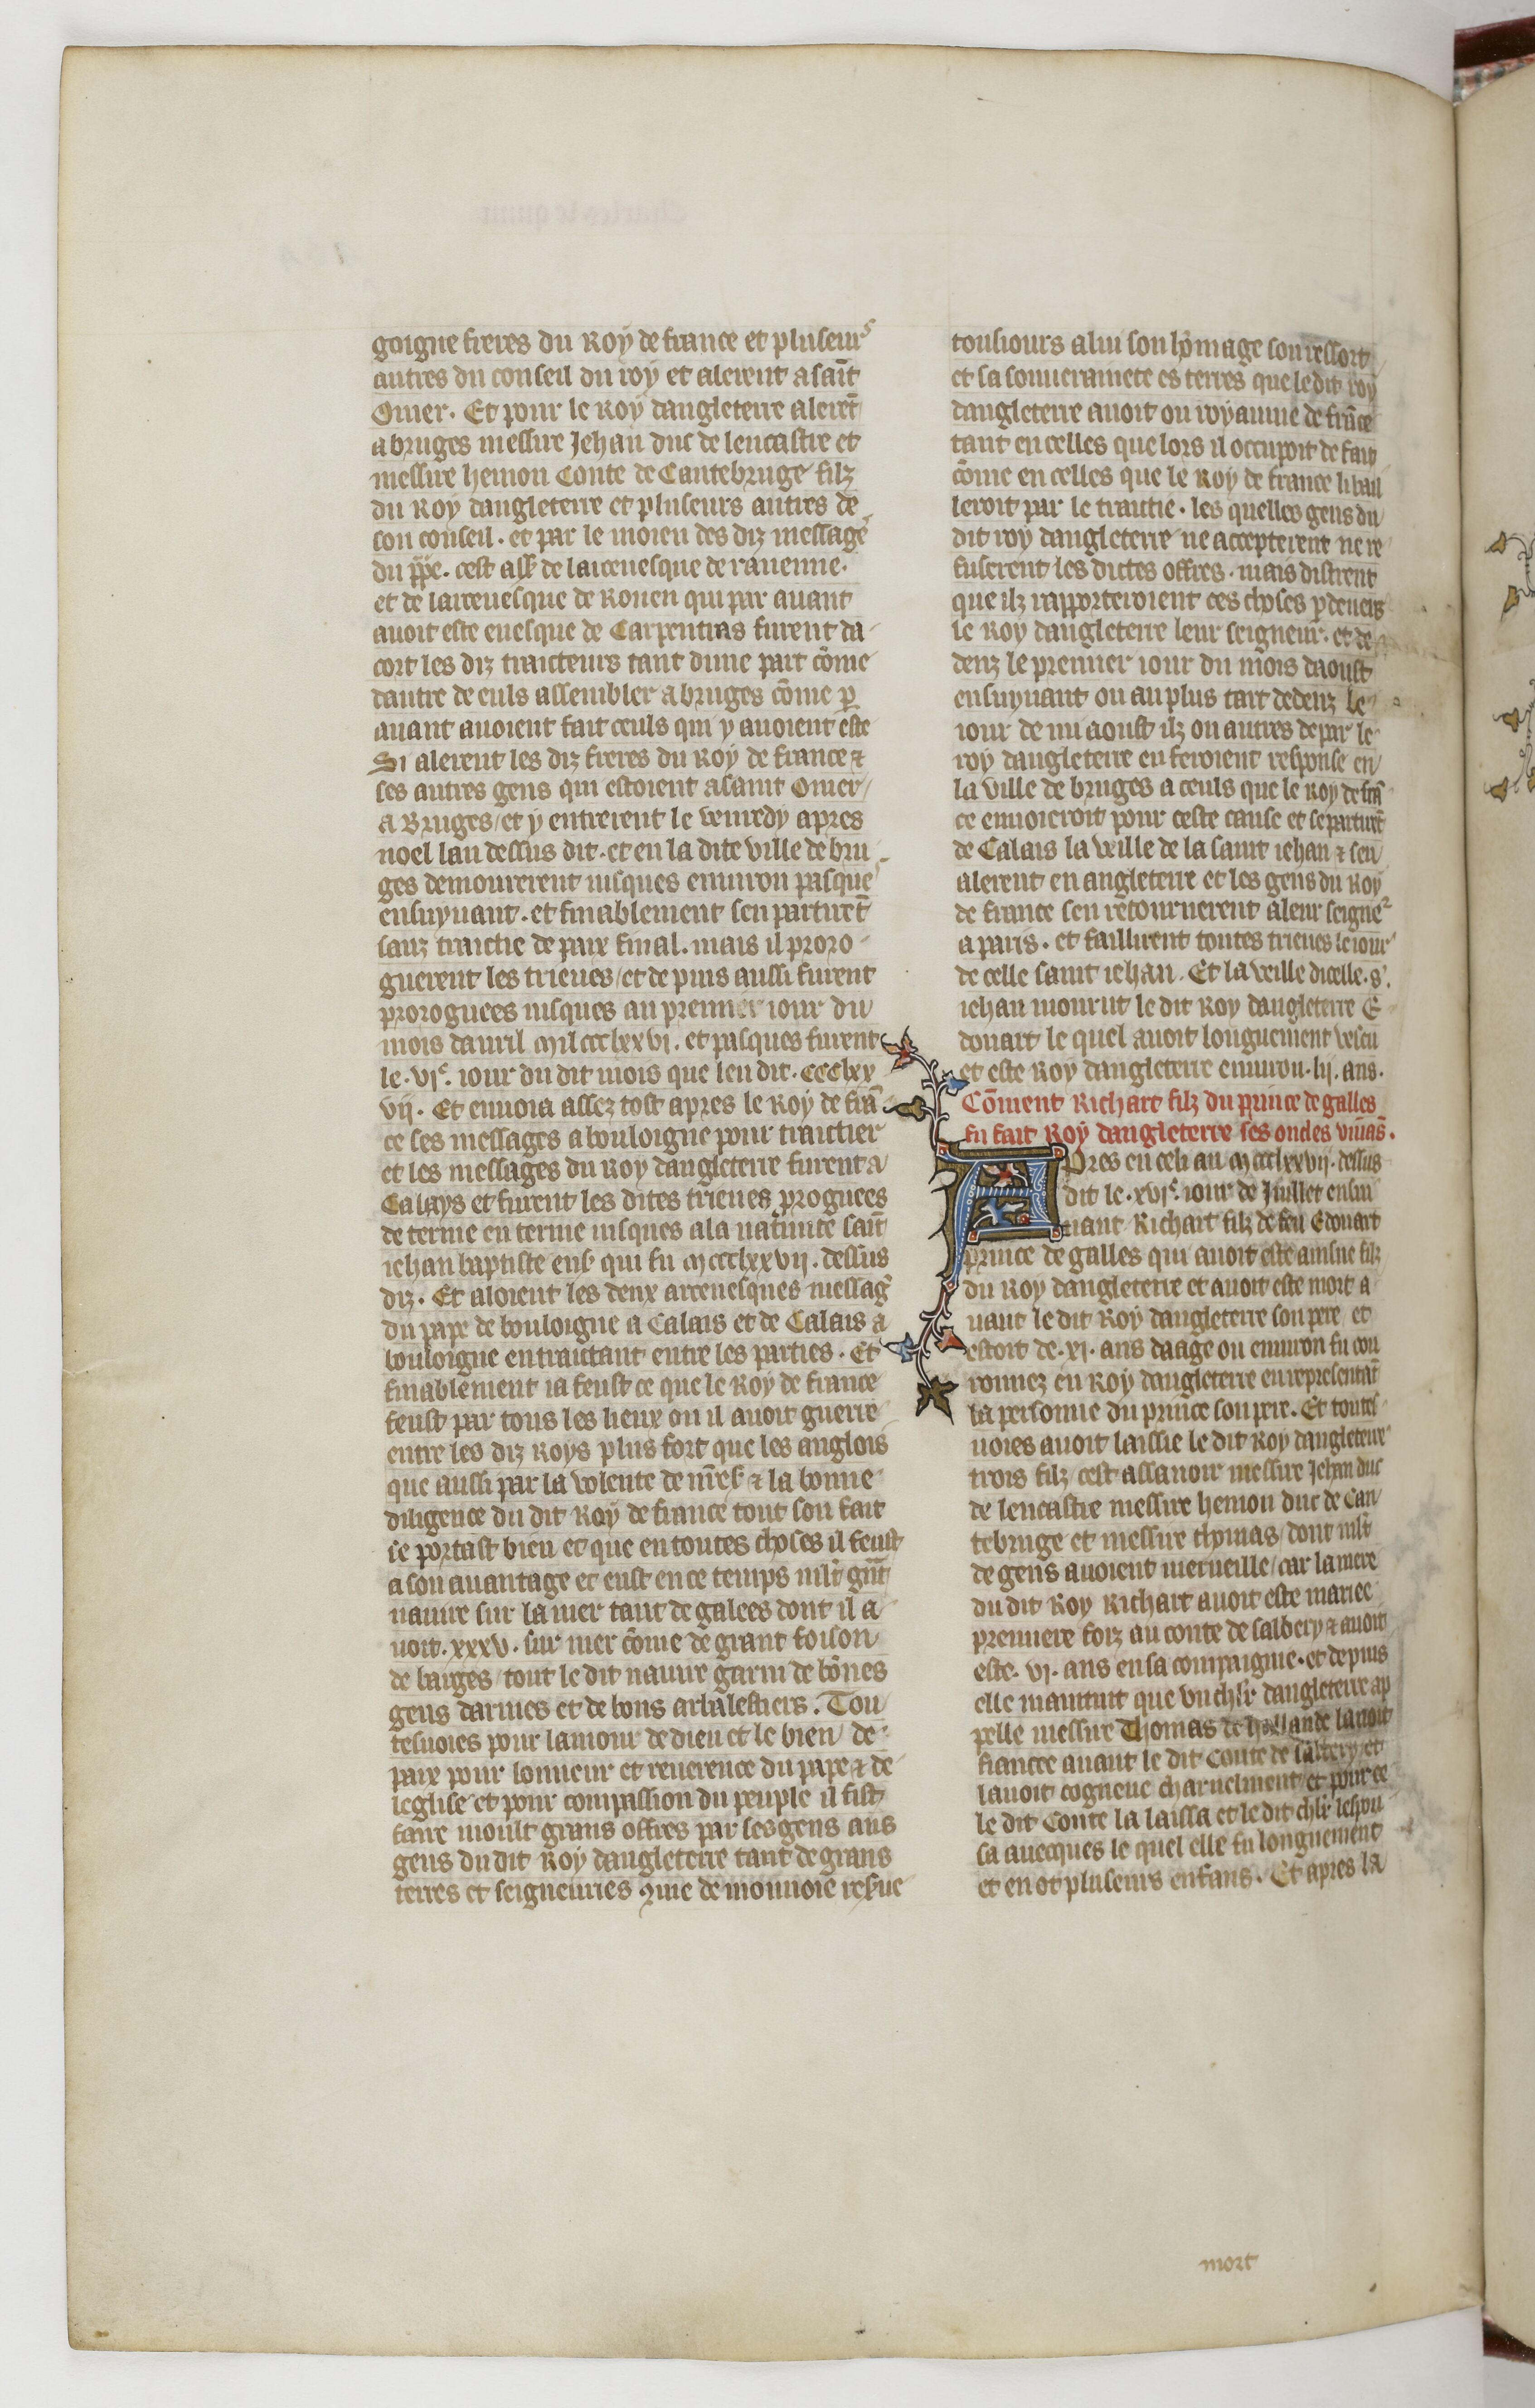 goigne freres du Roy de france et pluseurs
autres du conseil du roy et alerent a saīt
Omer. Et pour le Roy dangleterre alerēt
a bruges messire Jehan duc de lencastre et
messire hemon Conte de Cantebruge filz
du Roy dangleterre et pluseurs autres de
son conseil. et par le moien des diz message
du pp̄e. cest ass̄ de larceuesque de rauenne.
et de larceuesque de Rouen qui par auant
auoit este euesque de Carpentras furent da
cort les diz traicteurs tant dune part cōme
dautre de euls assembler a bruges cōme p̱
auant auoient fait ceuls qui y auoient este
Si alerent les diz freres du Roy de france ⁊
ses autres gens qui estoient a saint Omer
a Bruges / et y entrerent le venredy apres
noel lan dessus dit. et en la dite ville de bru
ges demourerent iusques enuiron pasque
ensuyuant. et finablement sen partirēt
sanz traictie de paix final. mais il proro
guerent les trieues / et depuis aussi furent
proroguees iusques au premier iour du
mois dauril mil ccclxxvi. et pasques furent
le .vi͡e. iour du dit mois que len dit. ccclxx
vii. Et enuoia assez tost apres le Roy de frā
ce ses messages a bouloigne pour traictier
et les messages du Roy dangleterre furent a
Calays et furent les dites trieues proguees
de terme en terme iusques a la natiuite saīt
iehan baptiste ens̄ qui fu mccclxxvii. dessus
diz. Et aloient les deux arceuesques messag̉
du pape de bouloigne a Calais et de Calais a
bouloigne en traictant entre les parties. Et
finablement ia feust ce que le Roy de france
feust par tous les lieux ou il auoit guerre
entre les diz Roys plus fort que les anglois
que aussi par la volente de nr̄es̄ ⁊ la bonne
diligence du dit Roy de france tout son fait
se portast bien et que en toutes choses il feust
a son auantage et eust en ce temps mlt̄ gñt
nauire sur la mer tant de galees dont il a
uoit .xxxv. sur mer cōme de grant foison
de barges / tout le dit nauire garni de bōnes
gens darmes et de bons arbalestiers. Tou
tesuoies pour lamour de dieu et le bien de
paix pour lonneur et reuerence du pape ⁊ de
leglise et pour compassion du peuple il fist
faire moult grans offres par ses gens aus
gens du dit Roy dangleterre tant de grans
terres et seigneuries ꝯme de monnoie reserue
tousiours a lui son hōmage son ressort
et sa souuerainete es terres que le dit roy
dangleterre auoit ou royaume de frāce
tant en celles que lors il occupoit de fait
cōme en celles que le Roy de france li bail
leroit par le traitie. les quelles gens du
dit roy dangleterre ne accepterent ne re
fuserent les dictes offres. mais distrent
que ilz rapporteroient ces choses p̱ deuers
le Roy dangleterre leur seigneur. et de
denz le premier iour du mois daoust
ensuyuant ou au plus tart dedenz le
iour de mi aoust ilz ou autres de par le
roy dangleterre en feroient response en
la ville de bruges a ceuls que le Roy de frā
ce enuoieroit pour ceste cause et se partirēt
de Calais la veille de la saint iehan ⁊ sen
alerent en angleterre et les gens du Roy
de france sen retournerent a leur seigne²
a paris. et faillirent toutes trieues le iour
de celle saint iehan. Et la veille dicelle .s'.
iehan mourut le dit Roy dangleterre E
douart le quel auoit longuement vescu
et este Roy dangleterre enuiron .lij. ans.
Cōment Richart filz du prince de galles
fu fait Roy dangleterre ses oncles viuās.
Apres en celi an mccclxxvij. dessus
dit le .xvi͡e. iour de Juillet ensui
uant Richart filz de feu Edouart
prince de galles qui auoit este ainsne filz
du Roy dangleterre et auoit este mort a
uant le dit Roy dangleterre son pere et
estoit de .xi. ans daage ou enuiron fu cou
ronnez en Roy dangleterre en representāt
la personne du prince son pere. Et toutes
uoies auoit laissie le dit Roy dangleterre
trois filz / cest assauoir messire Jehan duc
de lencastre messire hemon duc de Can
tebruge et messire thomas / dont mlt̄
de gens auoient merueille / car la mere
du dit Roy Richart auoit este mariee
premiere foiz au conte de salbery ⁊ auoit
este .vi. ans en sa compaignie. et depuis
elle maintint que vn chlr̄ dangleterre ap
pelle messire Thomas de hollande lauoit
fiancee auant le dit Conte de salbery / et
lauoit cogneue charnelment / et pour ce
le dit Conte la laissa et le dit chlr̄ lespou
sa auecques le quel elle fu longuement
et en ot pluseurs enfans. Et apres la
mort